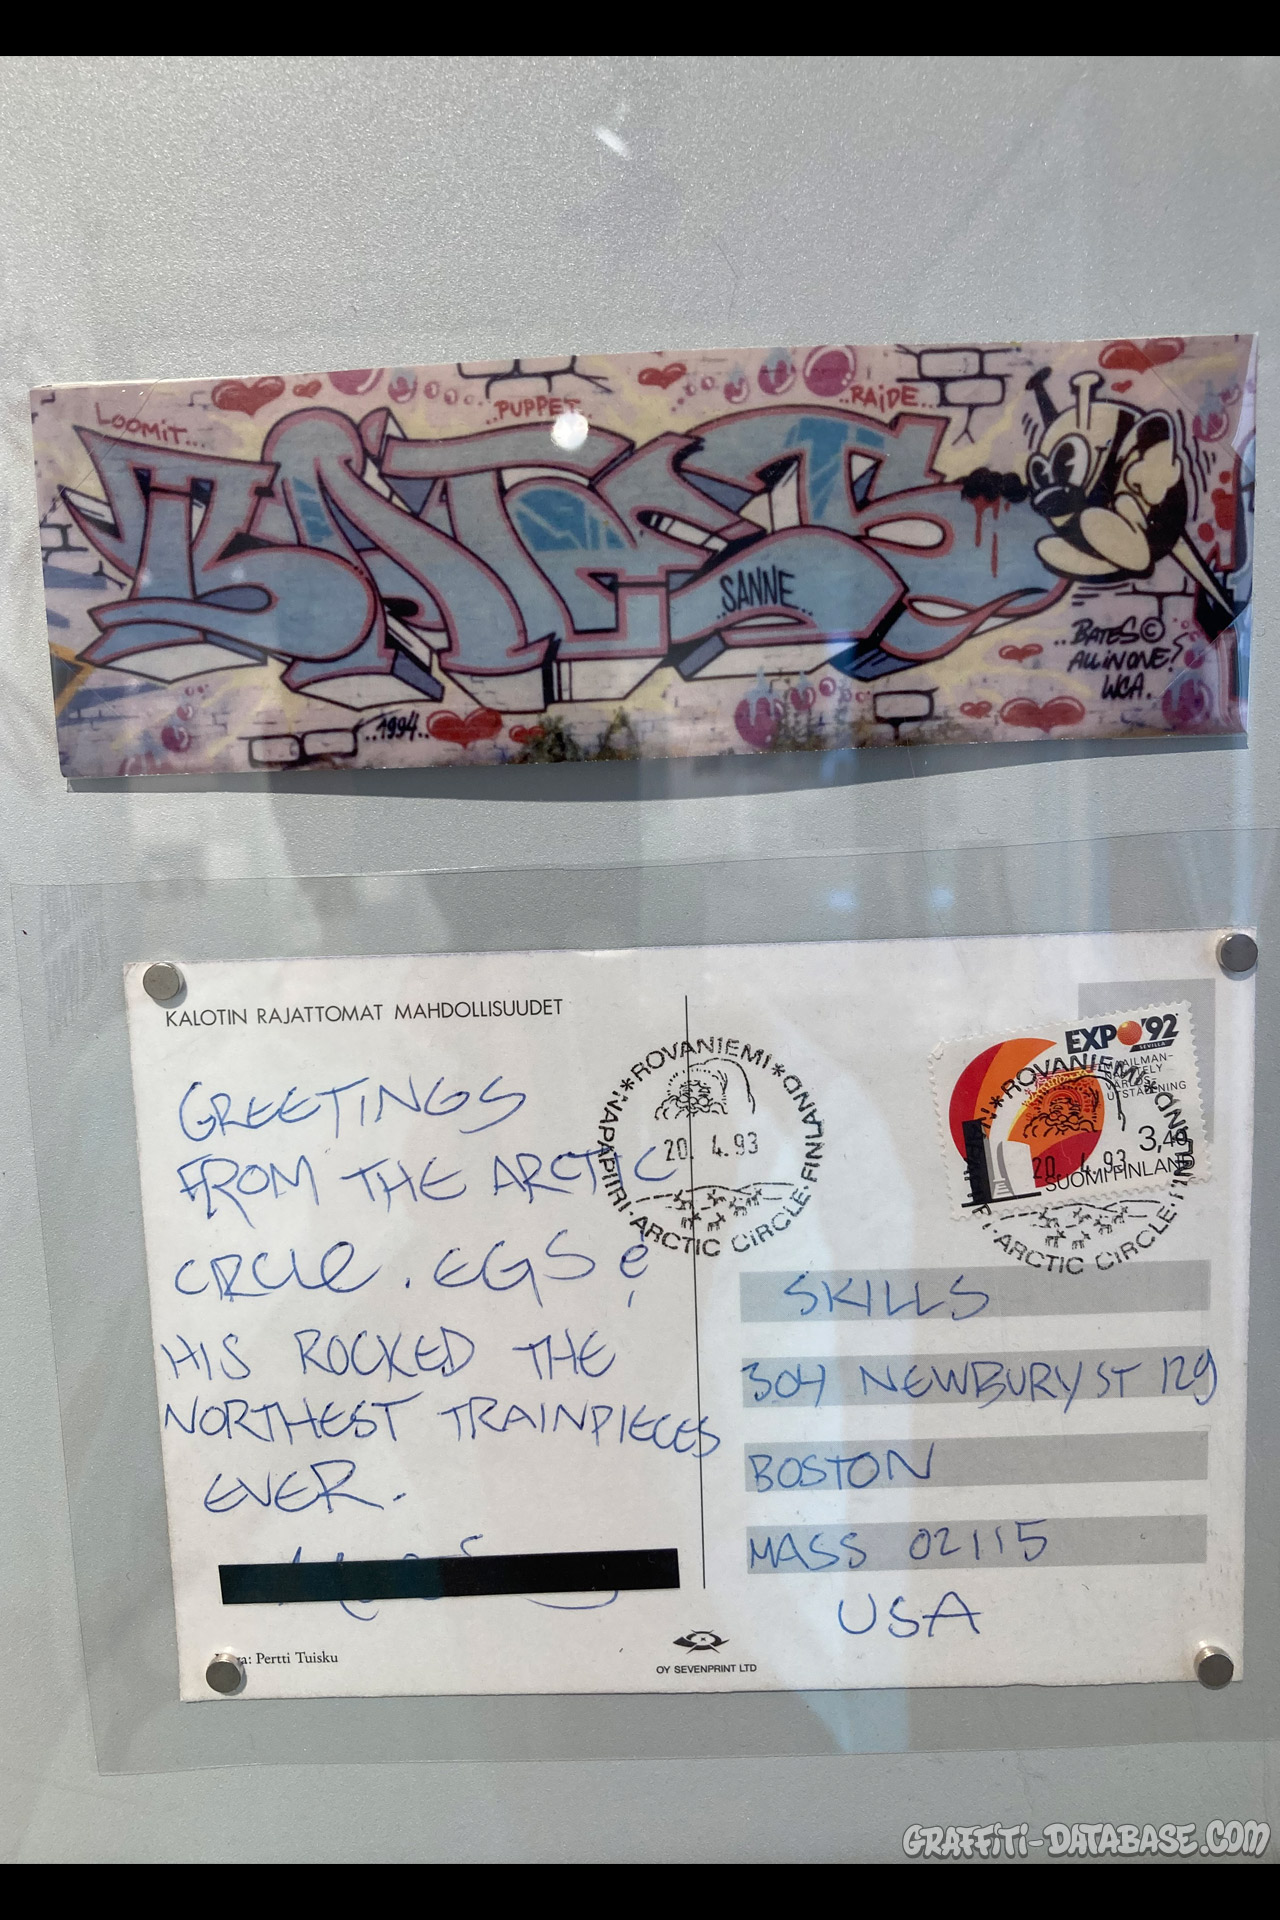 LOOMIT...
..PUPPET..
..RAIDE..
BATES
SANNE..
..BATES©
ALL IN ONE!
WCA.
..1994..
KALOTIN RAJATTOMAT MAHDOLLISUUDET
GREETINGS
FROM THE ARCTIC
CIRCLE. EGS &
HIS ROCKED THE
NORTHEST TRAINPIECES
EVER.
*ROVANIEMI*FINLAND
20. 4.93
NAPAPIIRI·ARCTIC CIRCLE·
EXPO '92
SEVILLA
MAAILMAN-
NÄYTTELY
VÄRLDS-
UTSTÄLLNING
3,40
SUOMI FINLAND
*ROVANIEMI*FINLAND
20. 4.93
ARCTIC CIRCLE·
SKILLS
304 NEWBURY ST 129
BOSTON
MASS 02115
USA
Pertti Tuisku
OY SEVENPRINT LTD
GRAFFITI-DATABASE.COM